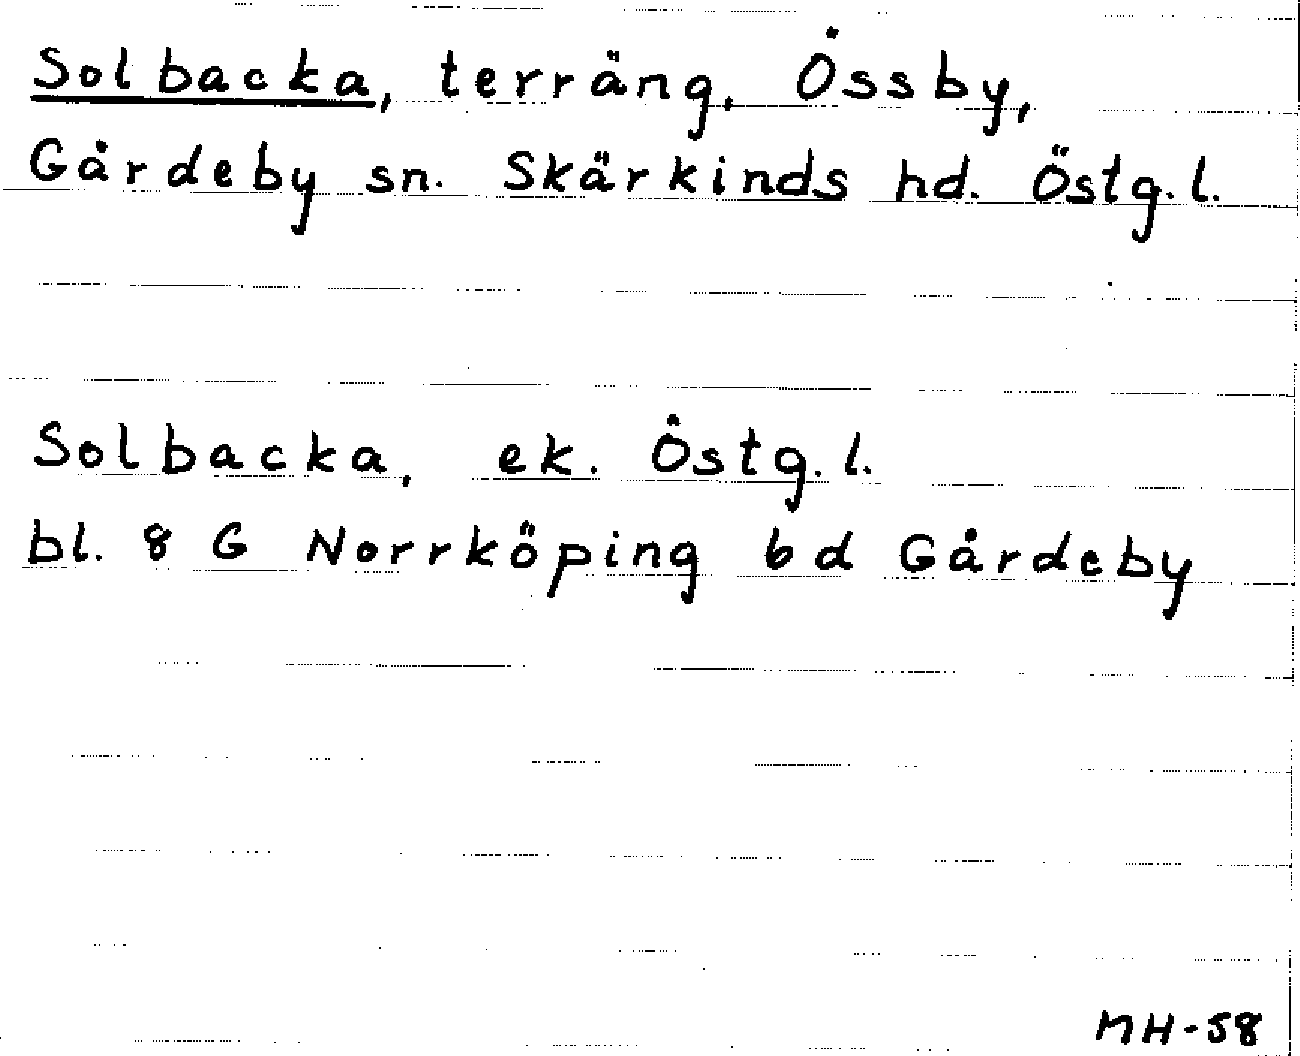 Solbacka, terräng, Össby,
Gårdeby sn. Skärkinds hd. Östg.l.
Solbacka, ek. Östg.l.
bl. 8 G Norrköping 6d Gårdeby
MH-58